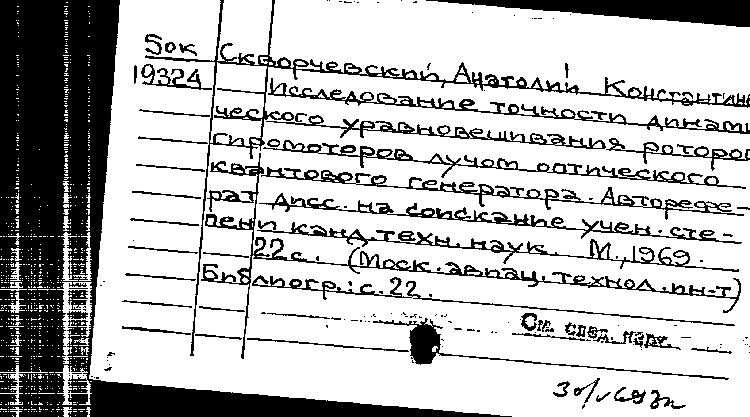 5ок Скворчевский, Анатолий Константин
19324 Исследование точности динами
ческого уравновешивания роторов
гиромоторов лучом оптического
квантового генератора. Авторефе-
рат дисс. на соискание учен. сте-
пени канд. техн. наук. М., 1969.
22 с. (Моск. авиац. технол. ин-т)
Библиогр.: с. 22.
См. след. карт.